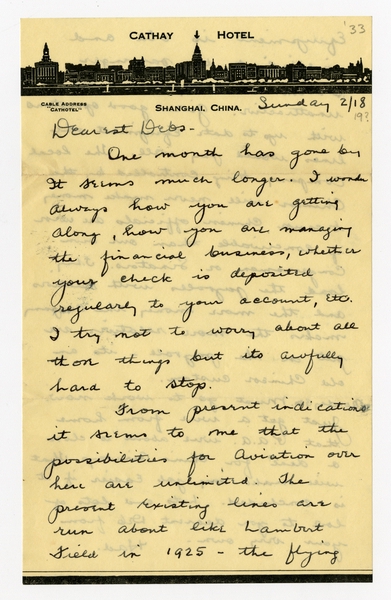 '33
CATHAY HOTEL
CABLE ADDRESS
"CATHOTEL"
SHANGHAI, CHINA.
Sunday 2/18
19?
Dearest Debs -
One month has gone by
It seems much longer. I wonder
always how you are getting
along, how you are managing
the financial business, whether
your check is deposited
regularly to your account, etc.
I try not to worry about all
those things but its awfully
hard to stop.
From present indications
it seems to me that the
possibilities for Aviation over
here are unlimited. The
present existing lines are
run about like Lambert
Field in 1925 - the flying